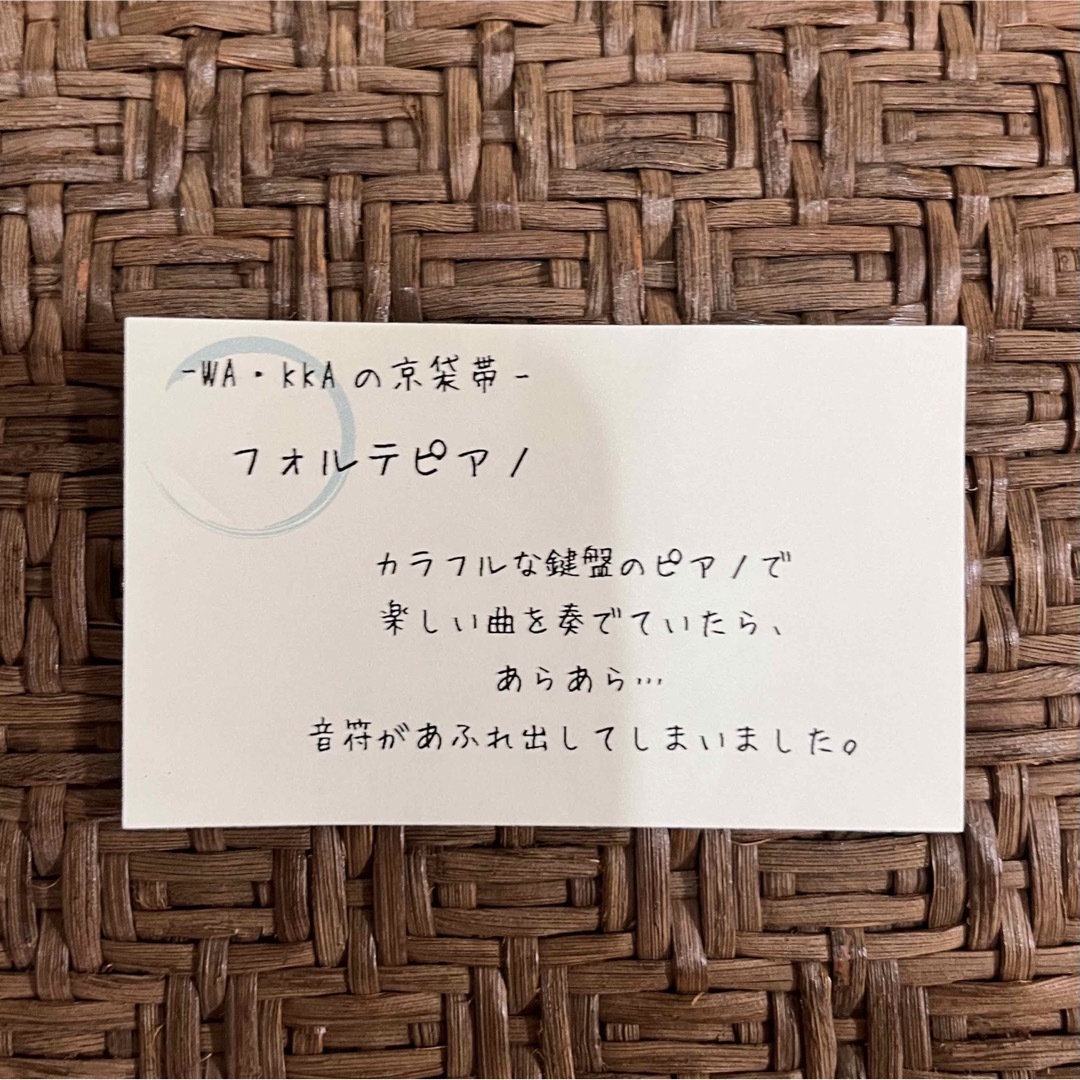 -WA・KKAの京袋帯-
フォルテピアノ
カラフルな鍵盤のピアノで
楽しい曲を奏でていたら、
あらあら…
音符があふれ出してしまいました。